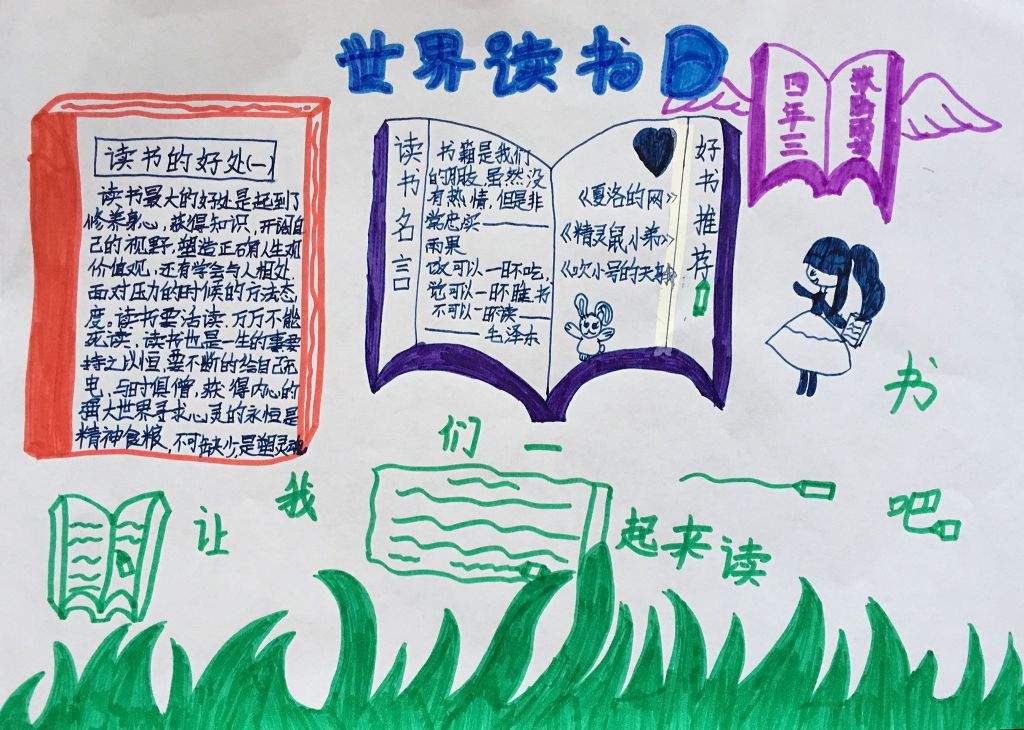 世界读书日
四年三
读书的好处(一)
读书最大的好处是起到了
修养身心,获得知识,开阔自
己的视野,塑造正确人生观
价值观,还有学会与人相处
面对压力的时候的方法态
度。读书要活读,万万不能
死读,读书也是一生的事要
持之以恒,要不断的给自己充
电,与时俱僧,获得内心的
强大世界寻求心灵的永恒是
精神食粮,不可缺少,是塑灵魂
读书名言
书籍是我们
的朋友,虽然没
有热情,但是非
常忠实——
雨果
饭可以一日不吃,
觉可以一日不睡,书
不可以一日不读——
——毛泽东
好书推荐
《夏洛的网》
《精灵鼠小弟》
《吹小号的天鹅》
让我们一起来读书吧